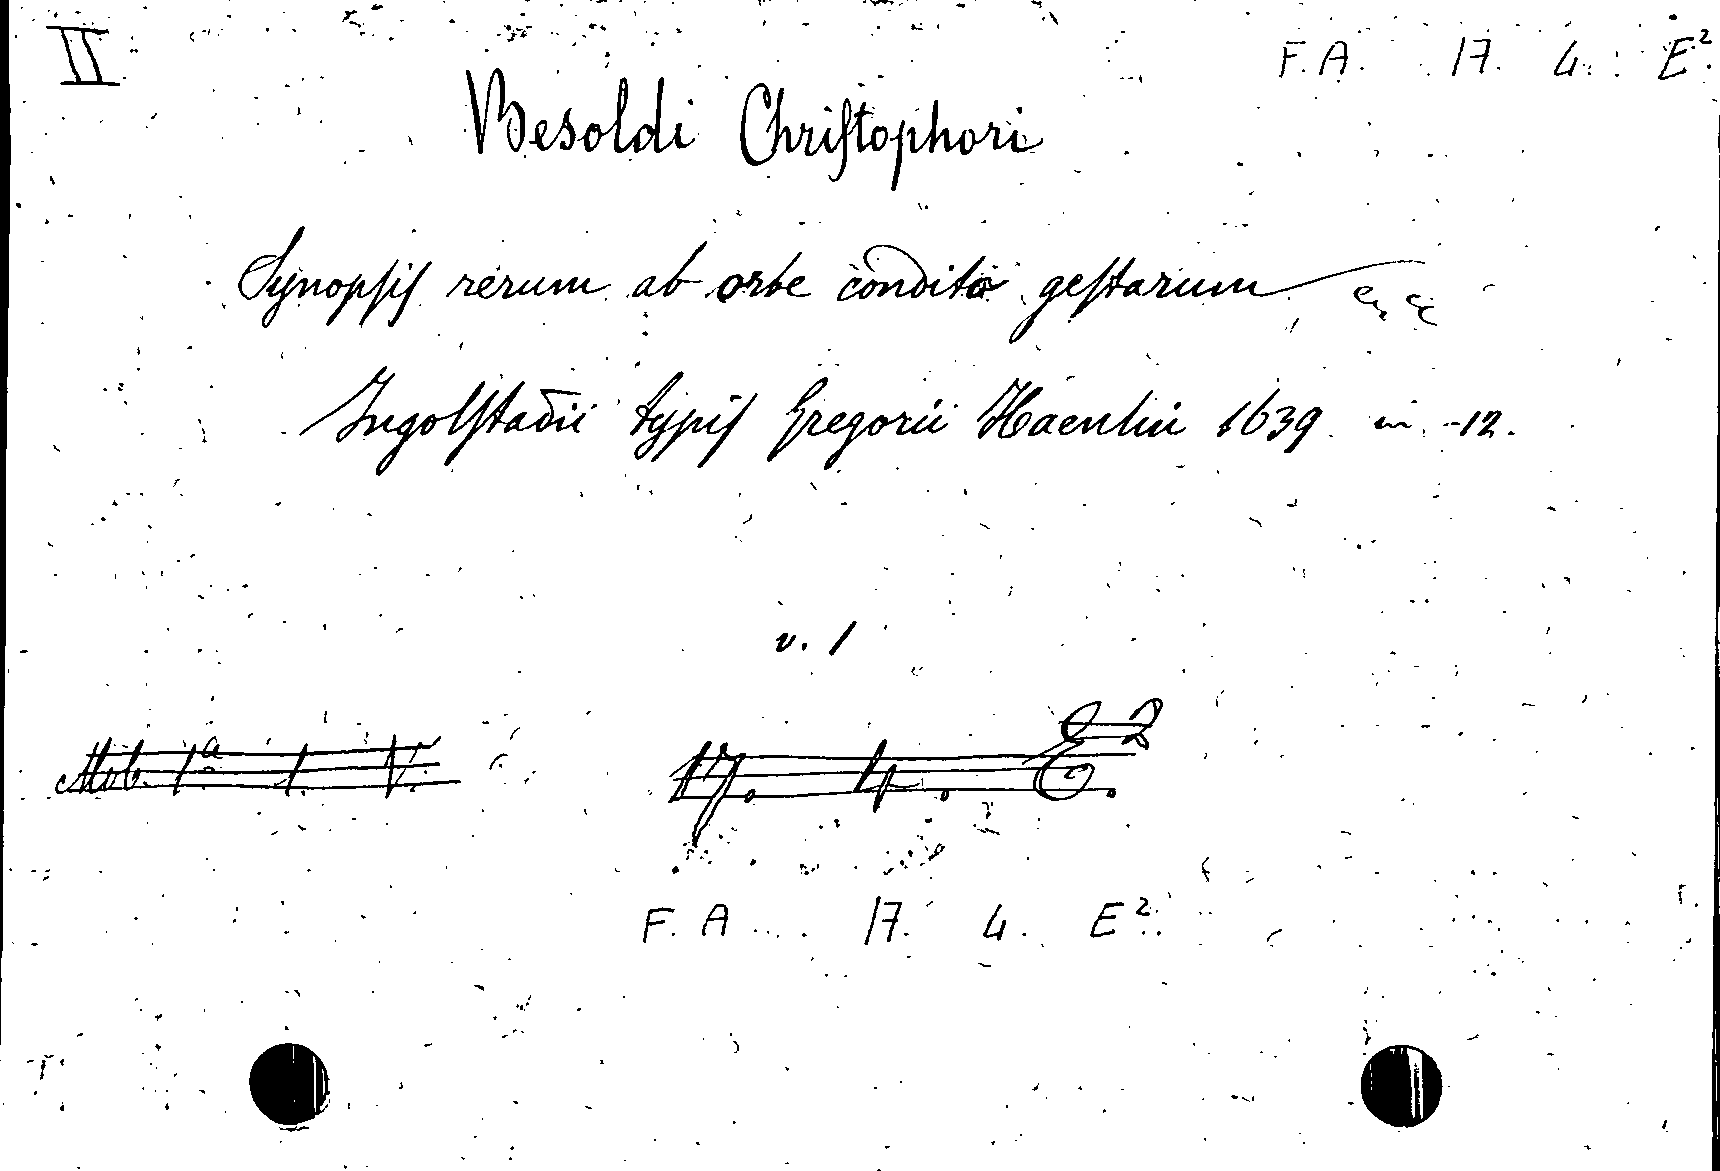 II
F. A. 17. 4. E².
Besoldi Chriſtophori
Synopſiſ rerum ab orbe condito geſtarum
Ingolſtadii typiſ Gregorii Haenlin 1639 in -12.
v. 1
Mob. 1ª 1. V.
17. 4. E².
F. A. 17. 4. E².